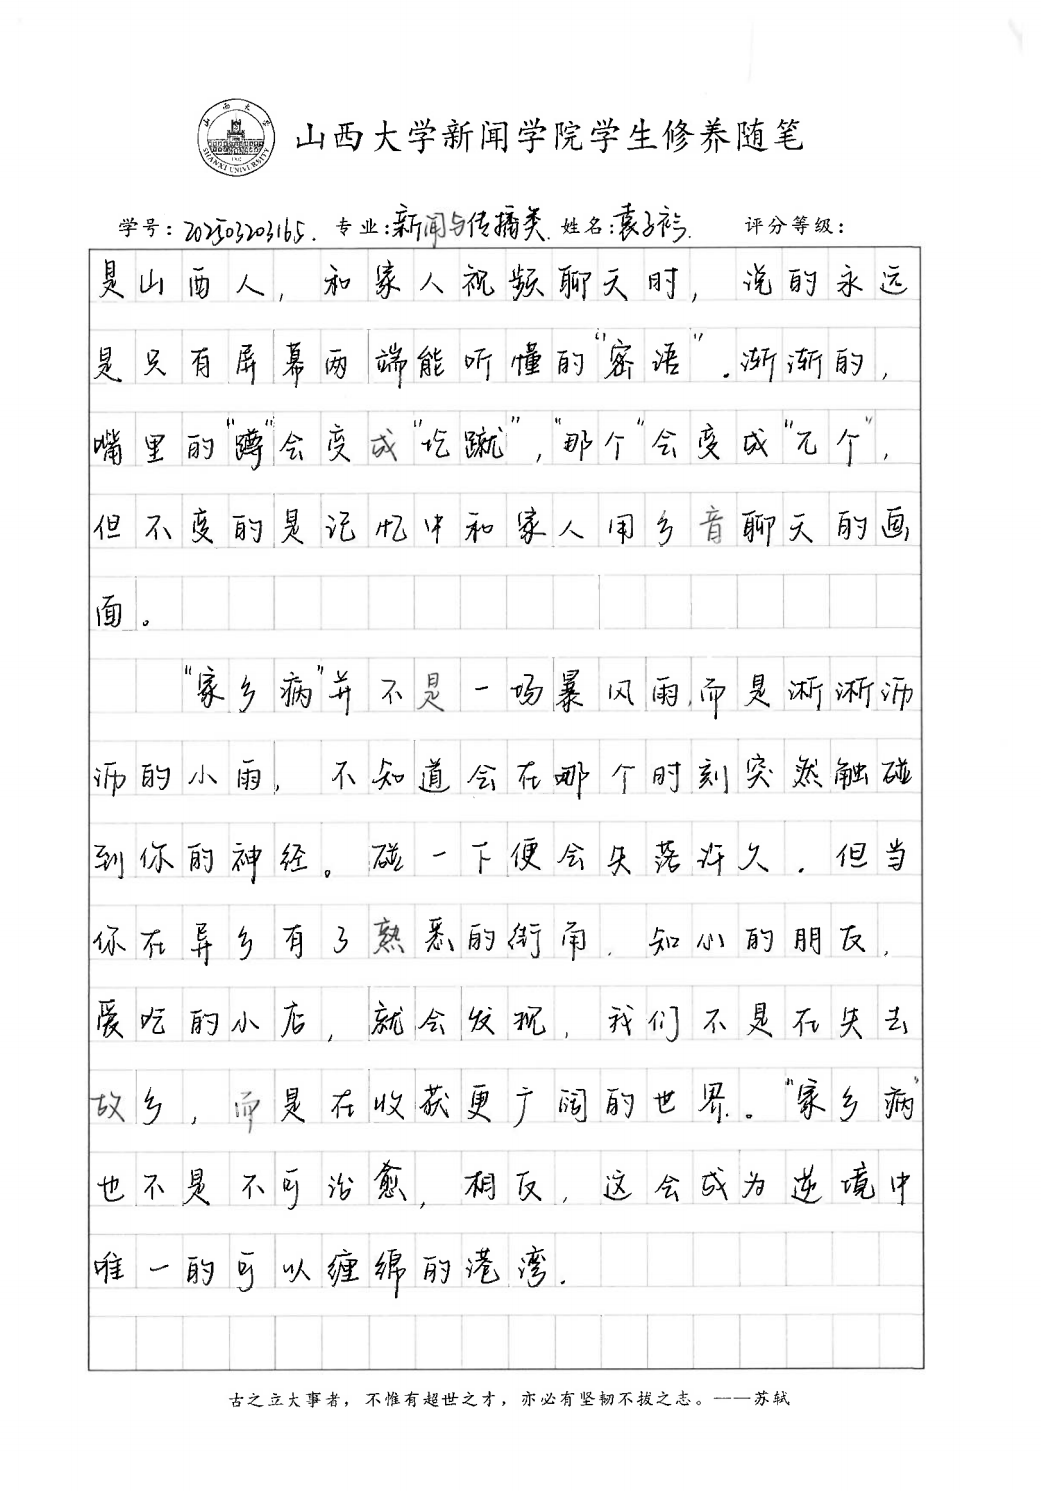 山西大学新闻学院学生修养随笔
山西大学
SHANXI UNIVERSITY
1902
学号：202503203165. 专业：新闻与传播类. 姓名：袁子衿. 评分等级：
是山西人，和家人视频聊天时，说的永远
是只有屏幕两端能听懂的“密语”.渐渐的，
嘴里的“蹲”会变成“圪蹴”，“那个”会变成“兀个”，
但不变的是记忆中和家人用乡音聊天的画
面。
“家乡病”并不是一场暴风雨，而是淅淅沥
沥的小雨，不知道会在哪个时刻突然触碰
到你的神经。碰一下便会失落许久.但当
你在异乡有了熟悉的街角.知心的朋友，
爱吃的小店，就会发现，我们不是在失去
故乡，而是在收获更广阔的世界.。“家乡病”
也不是不可治愈，相反，这会成为逆境中
唯一的可以缠绵的港湾.
古之立大事者，不惟有超世之才，亦必有坚韧不拔之志。——苏轼